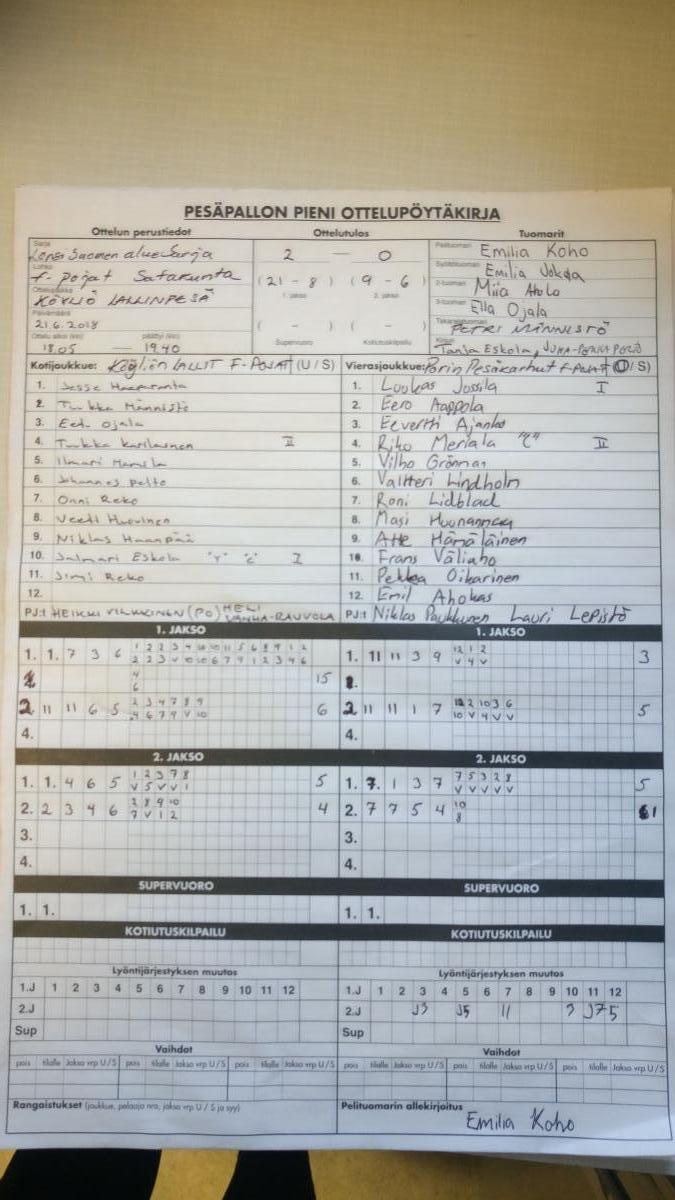 PESÄPALLON PIENI OTTELUPÖYTÄKIRJA
Ottelun perustiedot Ottelutulos Tuomarit
Sarja
Länsi Suomen aluesarja
2 — 0
Pelituomari Emilia Koho
Lohko
f-pojat Satakunta
Syöttötuomari Emilia
(21 - 8) (9 - 6)
1. jakso 2. jakso
2-tuomari Miia Ahola
Ottelupaikka
KÖYLIÖ LALLINPESÄ
3-tuomari Ella Ojala
Päivämäärä
21.6.2018
( - ) ( - )
Supervuoro Kotiutuskilpailu
Takarajatuomari PETRI MÄNNISTÖ
Ottelu alkoi (klo) päättyi (klo)
18.05 — 19.40
Kirjuri Tanja Eskola, JUHA-PEKKA
Kotijoukkue: Köyliön LALLIT F-POJAT (U / S)
1. Jesse Haaparanta
2. Tuukka Männistö
3. Eeli Ojala
4. Tuukka Karilainen II
5. Ilmari
6. Johannes Pelto
7. Onni Reko
8. Veeti Huovinen
9. Niklas Haanpää
10. Salmari Eskola "Y" "C" I
11. Jimi Reko
12.
PJ:t HEIKKI VILKKINEN (PO) HELI VANHA-RAUVOLA
Vierasjoukkue: Porin Pesäkarhut F-POJAT (U / S)
1. Luukas Jussila I
2. Eero Aappola
3. Eevertti Ajanko
4. Riko Meriala "C" II
5. Vilho Grönman
6. Valtteri Lindholm
7. Roni Lidblad
8. Masi
9. Atte Hämäläinen
10. Frans Väliaho
11. Pekka Oikarinen
12. Emil Ahokas
PJ:t Niklas Paukkunen Lauri Lepistö
1. JAKSO
1. 1. 7 3 6 1 2 2 3 4 10 10 11 5 6 8 9 1 2
2 2 3 V 10 10 6 7 9 1 2 3 4 6
4
6
15
2 11 11 6 5 2 3 4 7 8 9
4 6 7 9 V 10
6
4.
1. JAKSO
1. 11 11 3 9 12 1 2
V 4 V
3
2 11 11 1 7 12 2 10 3 6
10 V 4 V V
5
4.
2. JAKSO
1. 1. 4 6 5 1 2 3 7 8
V 5 V V 1
5
2. 2 3 4 6 2 8 9 10
7 V 1 2
4
3.
4.
2. JAKSO
1. 7. 1 3 7 7 5 3 2 8
V V V V V
5
2. 7 7 5 4 10
8
1
3.
4.
SUPERVUORO
1. 1.
SUPERVUORO
1. 1.
KOTIUTUSKILPAILU
KOTIUTUSKILPAILU
Lyöntijärjestyksen muutos
1.J 1 2 3 4 5 6 7 8 9 10 11 12
2.J
Sup
Lyöntijärjestyksen muutos
1.J 1 2 3 4 5 6 7 8 9 10 11 12
2.J
Sup
Vaihdot
pois tilalle Jakso vrp U/S pois tilalle Jakso vrp U/S pois tilalle Jakso vrp U/S
Vaihdot
pois tilalle Jakso vrp U/S pois tilalle Jakso vrp U/S pois tilalle Jakso vrp U/S
Rangaistukset (joukkue, pelaaja nro, jakso vrp U / S ja syy)
Pelituomarin allekirjoitus
Emilia Koho